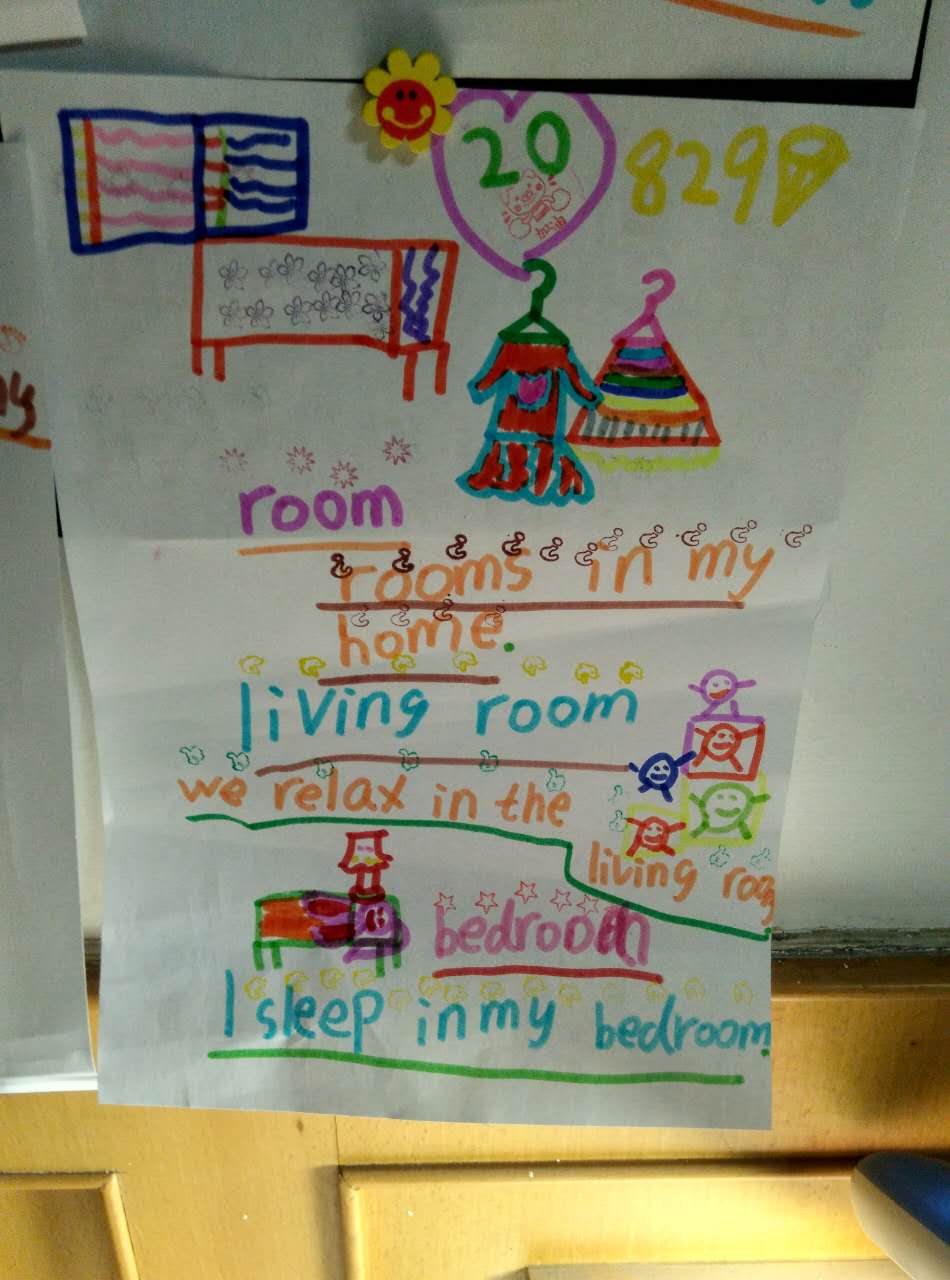 20
829
加油
room
rooms in my
home.
living room
we relax in the
living room
bedroom
I sleep in my bedroom.